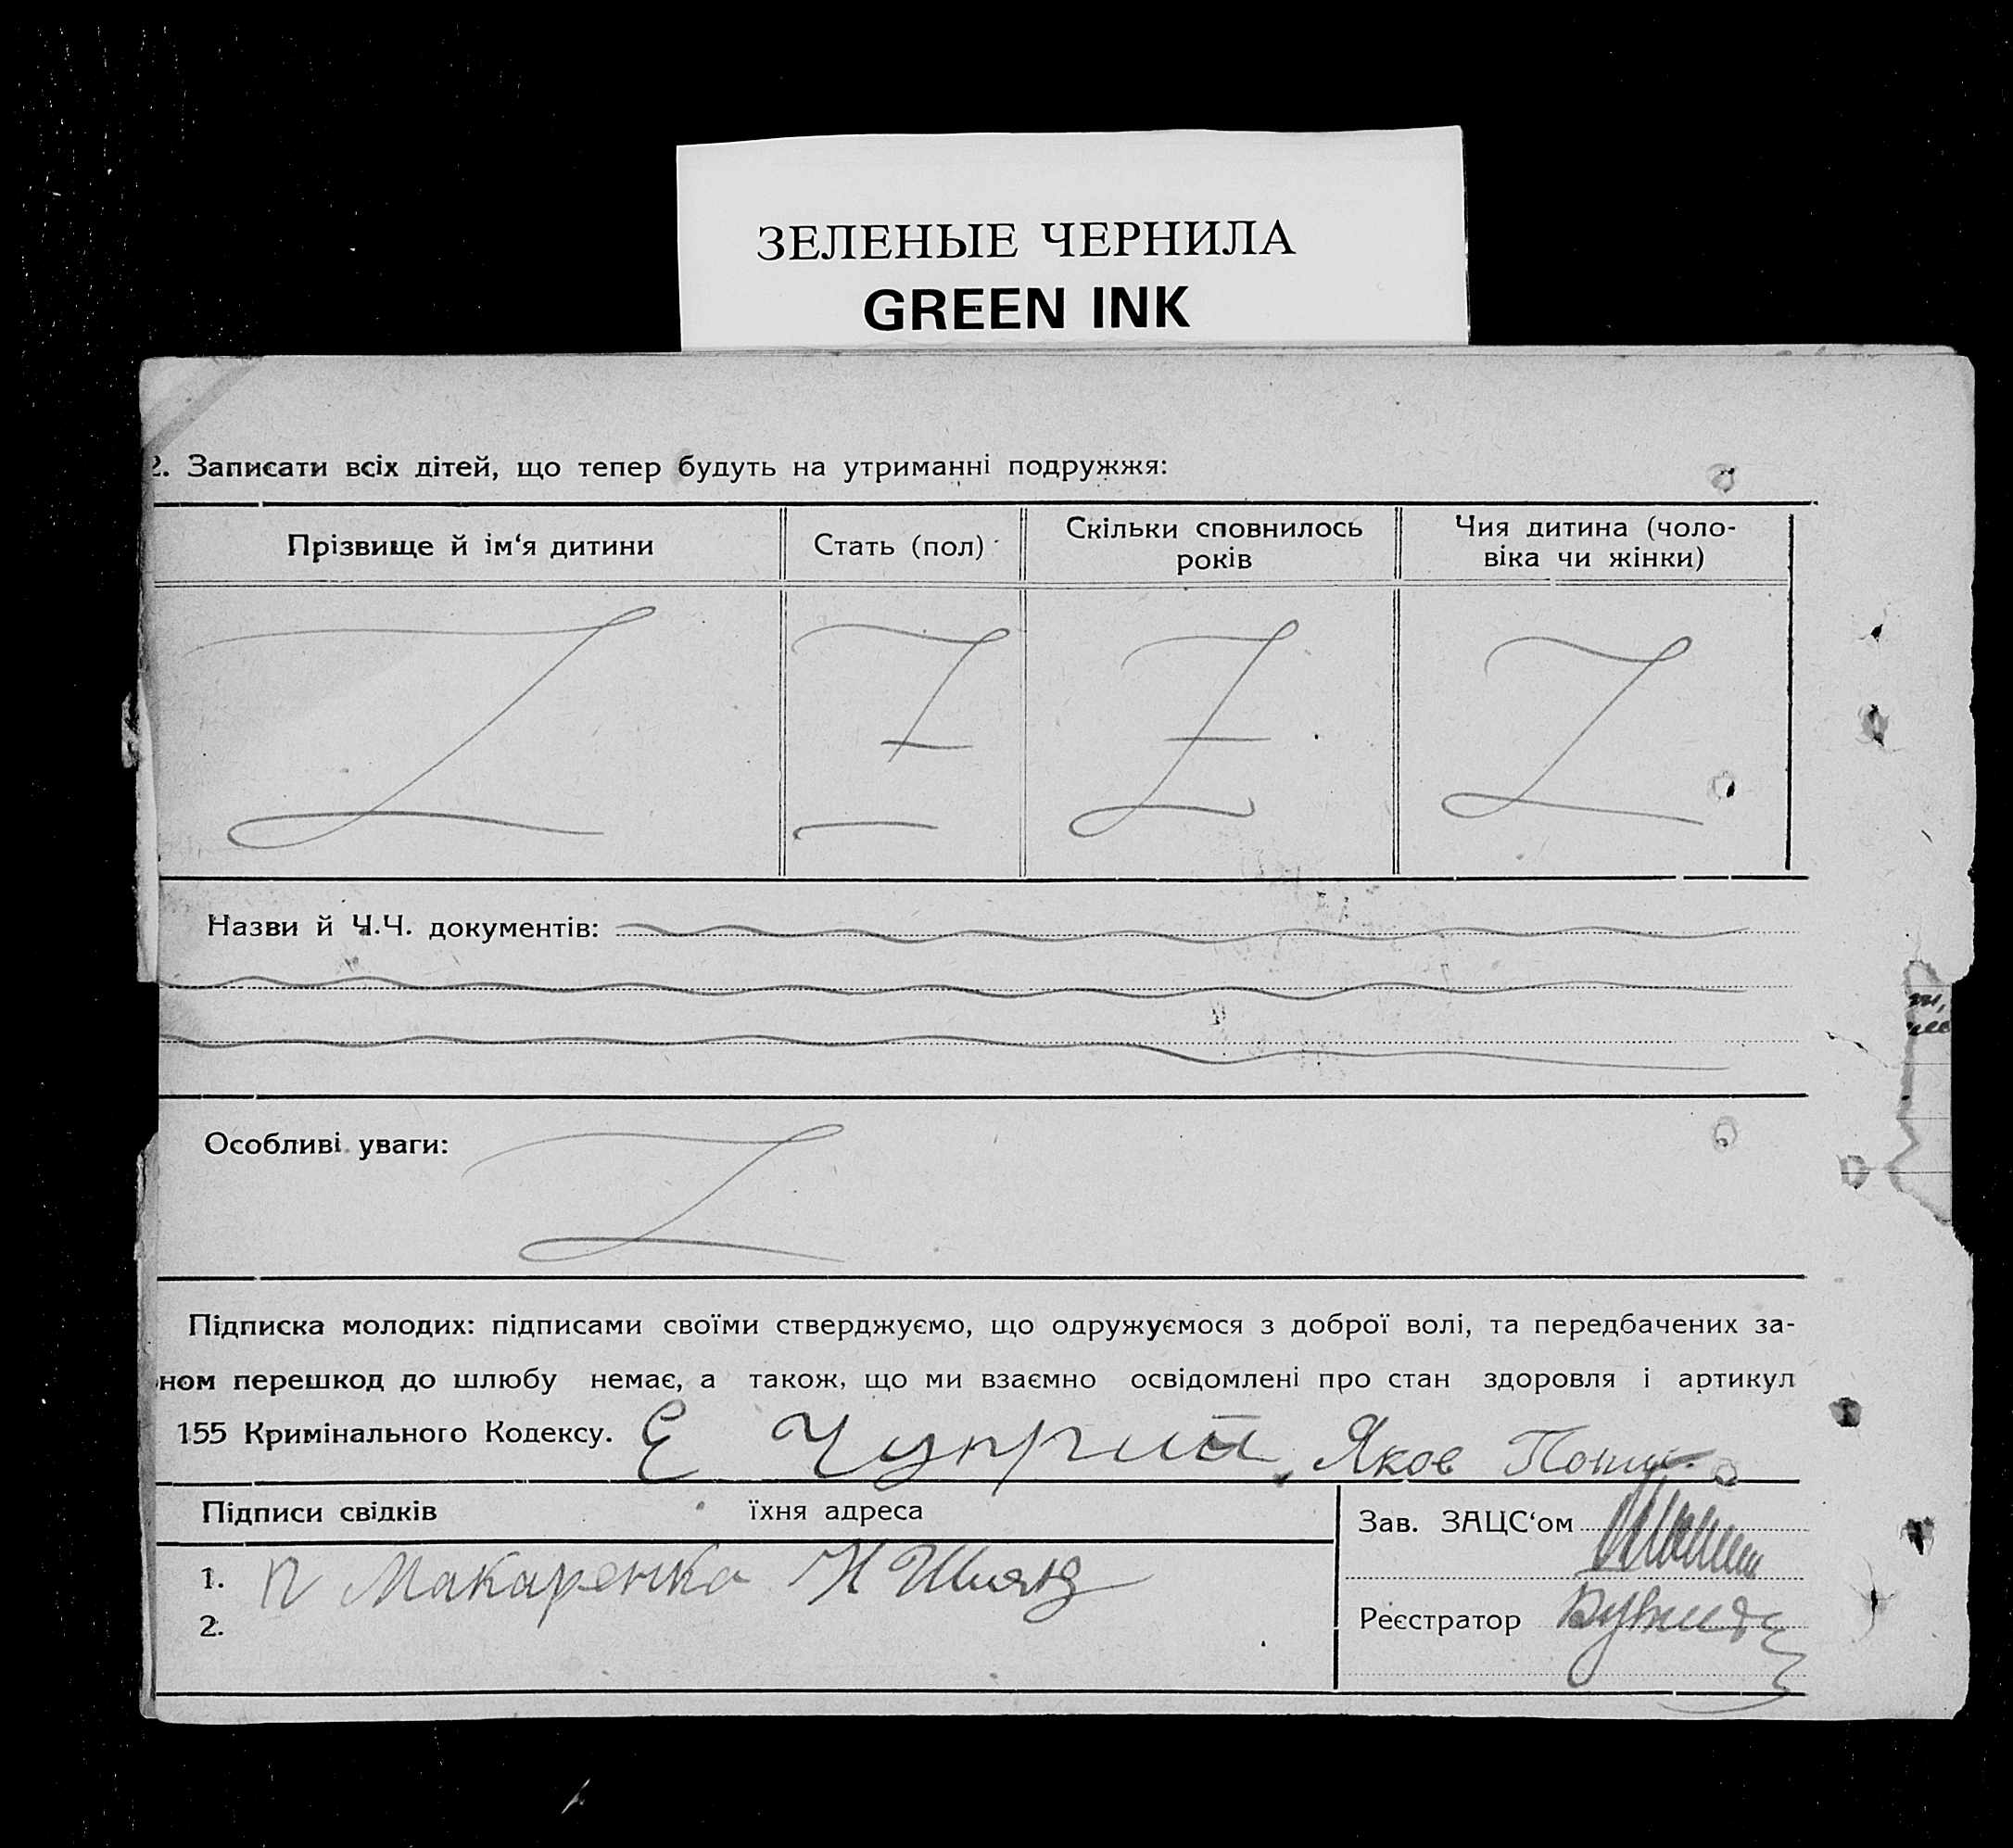 ЗЕЛЕНЫЕ ЧЕРНИЛА
GREEN INK
2. Записати всіх дітей, що тепер будуть на утриманні подружжя:
Прізвище й ім'я дитини
Стать (пол)
Скільки сповнилось
років
Чия дитина (чоло-
віка чи жінки)
Назви й Ч.Ч. документів:
Особливі уваги:
Підписка молодих: підписами своїми стверджуємо, що одружуємося з доброї волі, та передбачених за-
ном перешкод до шлюбу немає, а також, що ми взаємно освідомлені про стан здоровля і артикул
155 Кримінального Кодексу. Є Чуприй, Яков
Підписи свідків їхня адреса
Зав. ЗАЦС'ом
1. п Макаренко Н
2.
Реєстратор